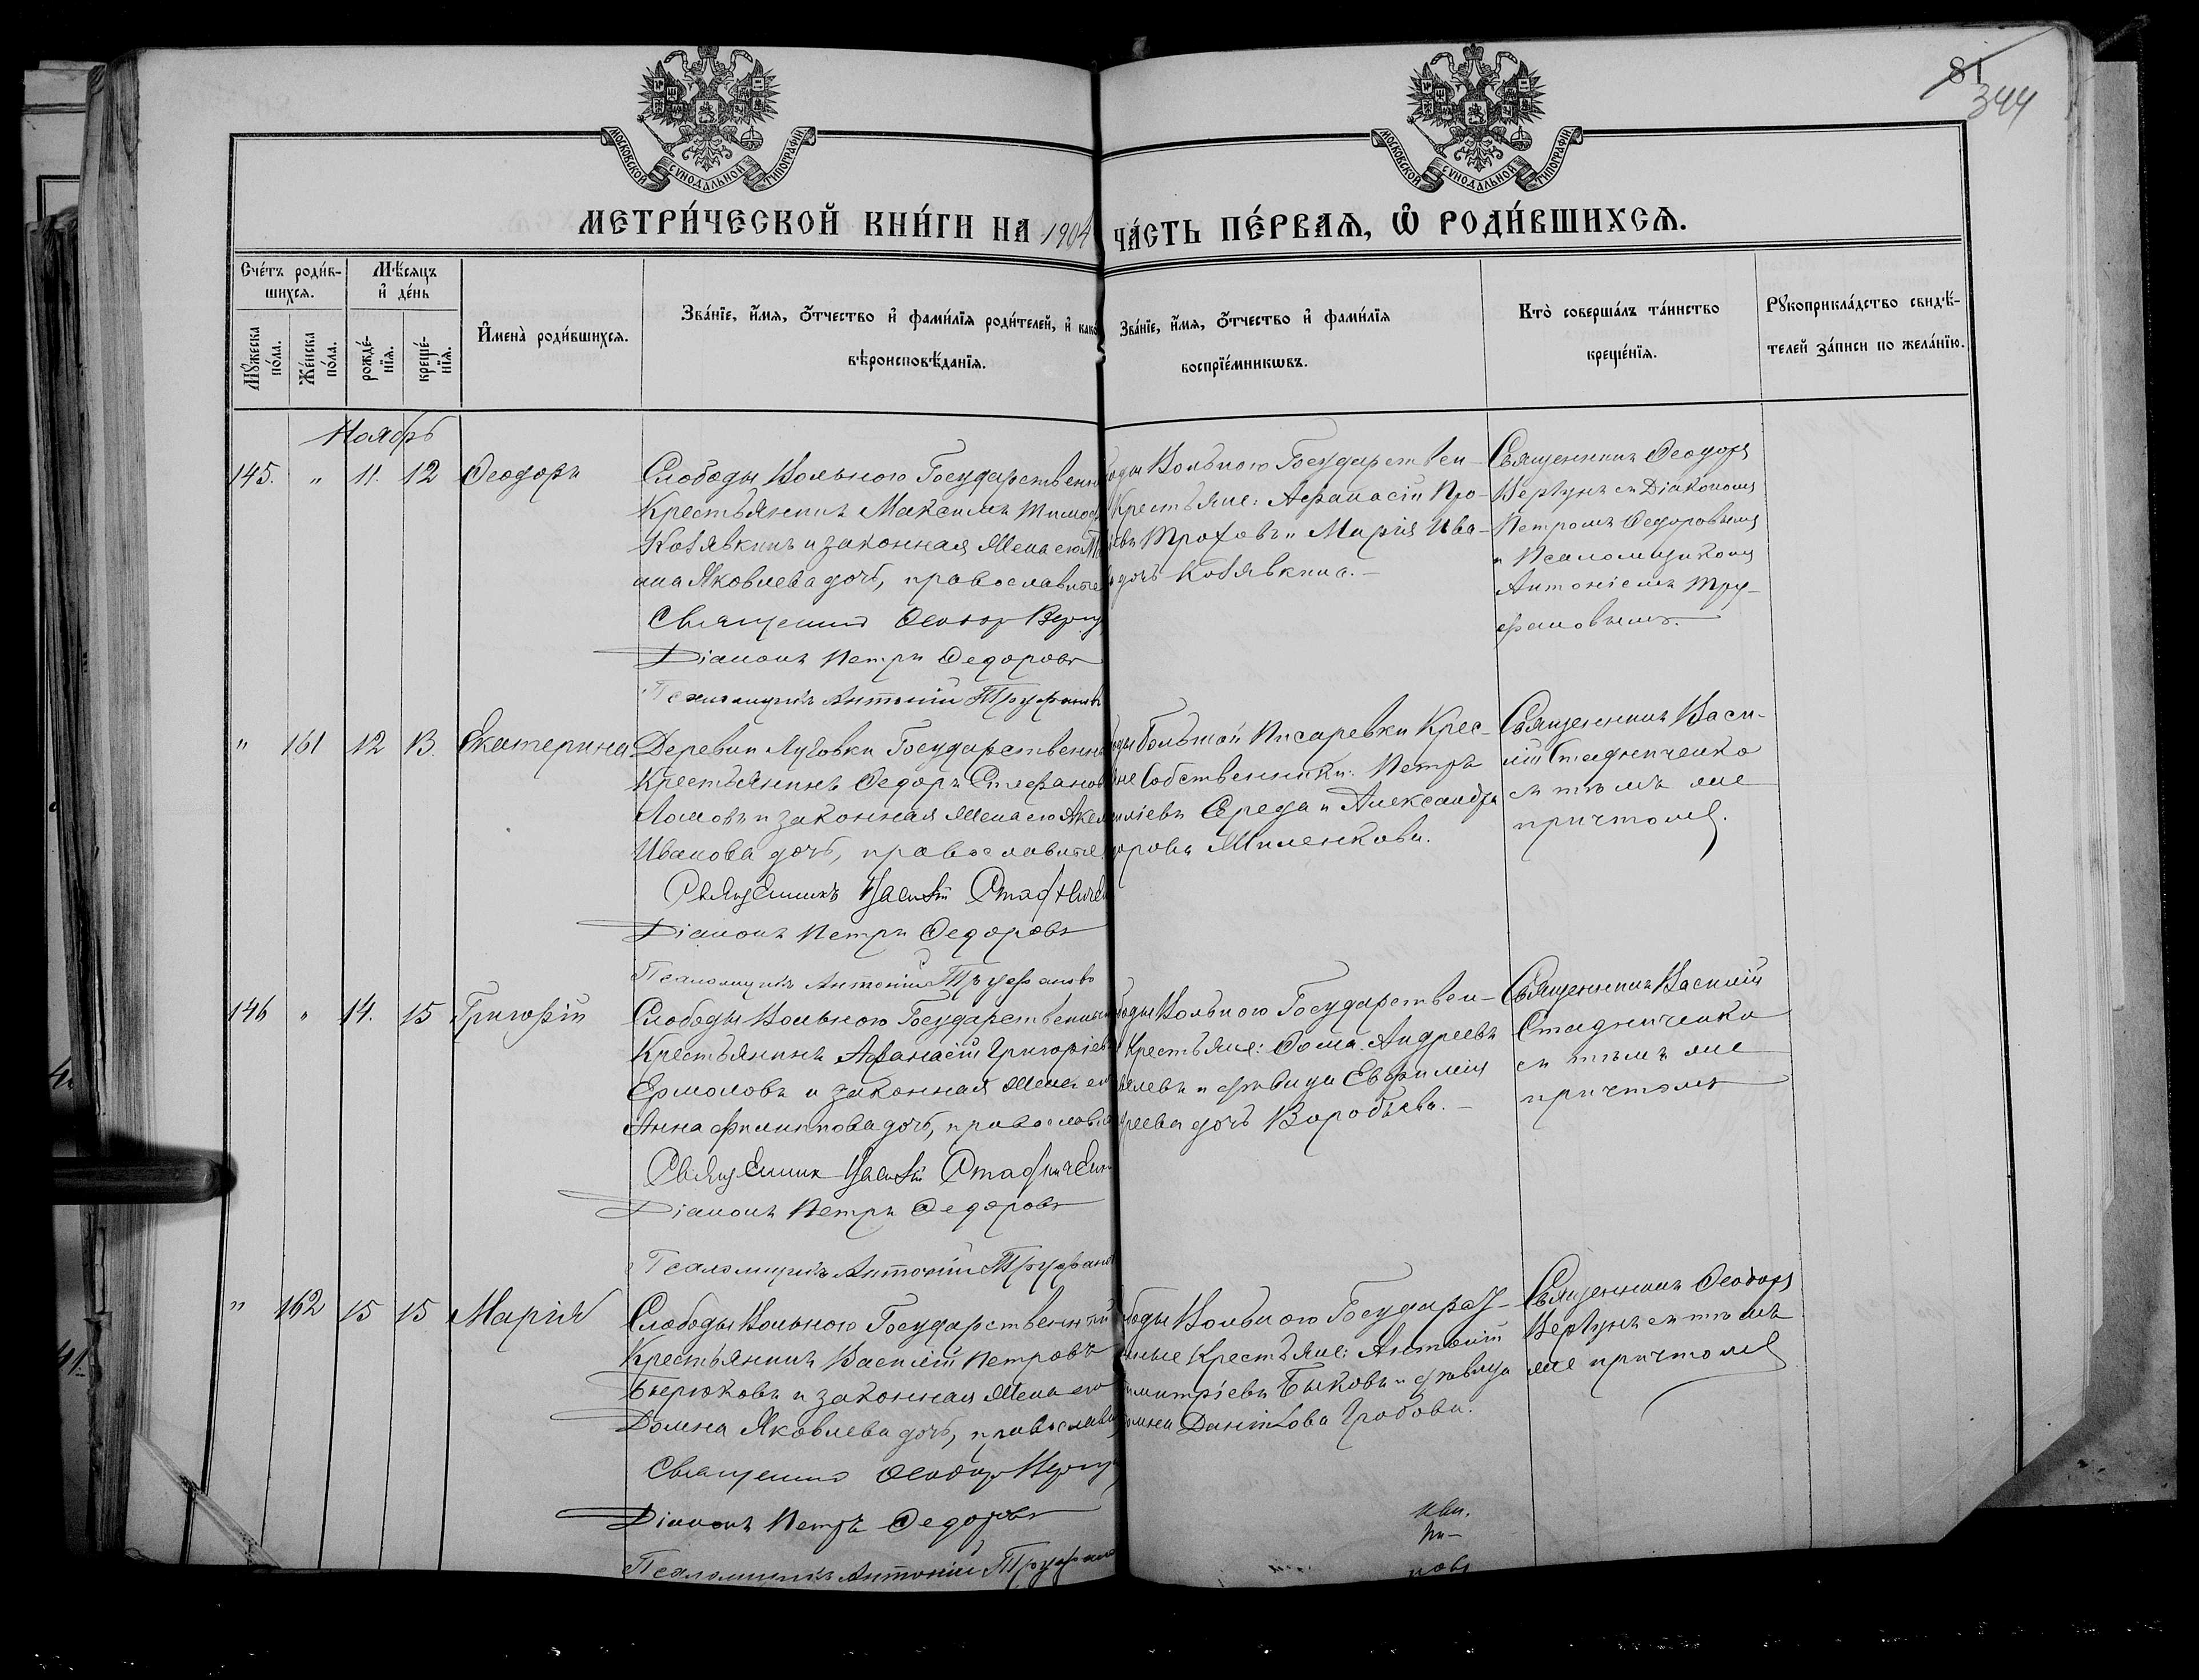 81
344
МОСКОВСКОЙ СѴНОДАЛЬНОЙ ТИПОГРАФІИ
МОСКОВСКОЙ СѴНОДАЛЬНОЙ ТИПОГРАФІИ
МЕТРИ́ЧЕСКОЙ КНИ́ГИ НА 1904 ЧА́СТЬ ПЕ́РВАЯ, Ѡ҆ РОДИ́ВШИХСЯ.
Сче́тъ роди́в-
шихсѧ.
Мѣ́сяцъ
и҆ де́нь
Мꙋ́жеска
по́ла.
Же́нска
по́ла.
рожде́-
нїѧ.
креще́-
нїѧ.
И҆мена̀ роди́вшихсѧ.
Зва́нїе, и҆́мѧ, ѻ҆́тчество и҆ фами́лїѧ роди́телей, и҆ како
вѣроисповѣ́данїѧ.
Зва́нїе, и҆́мѧ, ѻ҆́тчество и҆ фами́лїѧ
воспрїе́мникѡвъ.
Кто̀ соверша́лъ та́инство
креще́нїѧ.
Рꙋкоприкла́дство свидѣ́-
телей за́писи по жела́нїю.
Ноябрь
145. " 11. 12 Ѳеодоръ
Слободы Вольного Государственн
Крестьянинъ Максимъ Тимоф
Кобявкинъ и законная жена его
на Яковлева дочь, православные
Священникъ Ѳеодоръ Вергу
Діаконъ Петръ Ѳедоровъ
Псаломщикъ Антоній Труфановъ
оды Вольного Государствен-
Крестьяне: Афанасій Про-
евъ Трофовъ и Марія Ива-
дочь Кобявкина.-
Священникъ Ѳеодоръ
Вергунъ съ Діакономъ
Петромъ Ѳедоровымъ
и Псаломщикомъ
Антоніемъ Тру-
фановымъ.
" 161 12 13. Екатерина
Деревни Луговки Государственн
Крестьянинъ Ѳедоръ Стефанов
Ломовъ и законная жена его Аке
Иванова дочь, православные
Священникъ Василій Стадниче
Діаконъ Петръ Ѳедоровъ
Псаломщикъ Антоній Труфановъ
оды Большой Писаревки Крес-
не Собственники: Петръ
иліевъ Середа и Александра
орова Миленкова.
Священникъ Васи-
лій Стадниченко
съ тѣмъ же
причтомъ.
146 " 14. 15 Григорій
Слободы Вольного Государственный
Крестьянинъ Афанасій Григоріев
Ермоловъ и законная жена его
Анна Филиппова дочь, правосл
Священникъ Василій Стадничен
Діаконъ Петръ Ѳедоровъ
Псаломщикъ Антоній Труфанов
оды Вольного Государствен-
Крестьяне: Ѳома Андреевъ
левъ и дѣвица Евфимія
реева дочь Воробьева.-
Священникъ Василій
Стадниченко
съ тѣмъ же
причтомъ
" 162 15 15 Марія
Слободы Вольного Государственный
Крестьянинъ Василій Петровъ
Бѣерюковъ и законная жена его
Домна Яковлева дочь, правосла
Священникъ Ѳеодоръ Вергу
Діаконъ Петръ Ѳедоровъ
Псаломщикъ Антоній Труфано
боды Вольного Государст-
нные Крестьяне: Антоній
имитріевъ Быковъ и дѣвица
омна Данилова Гробова.
Священникъ Ѳеодоръ
Вергунъ съ тѣмъ
же причтомъ